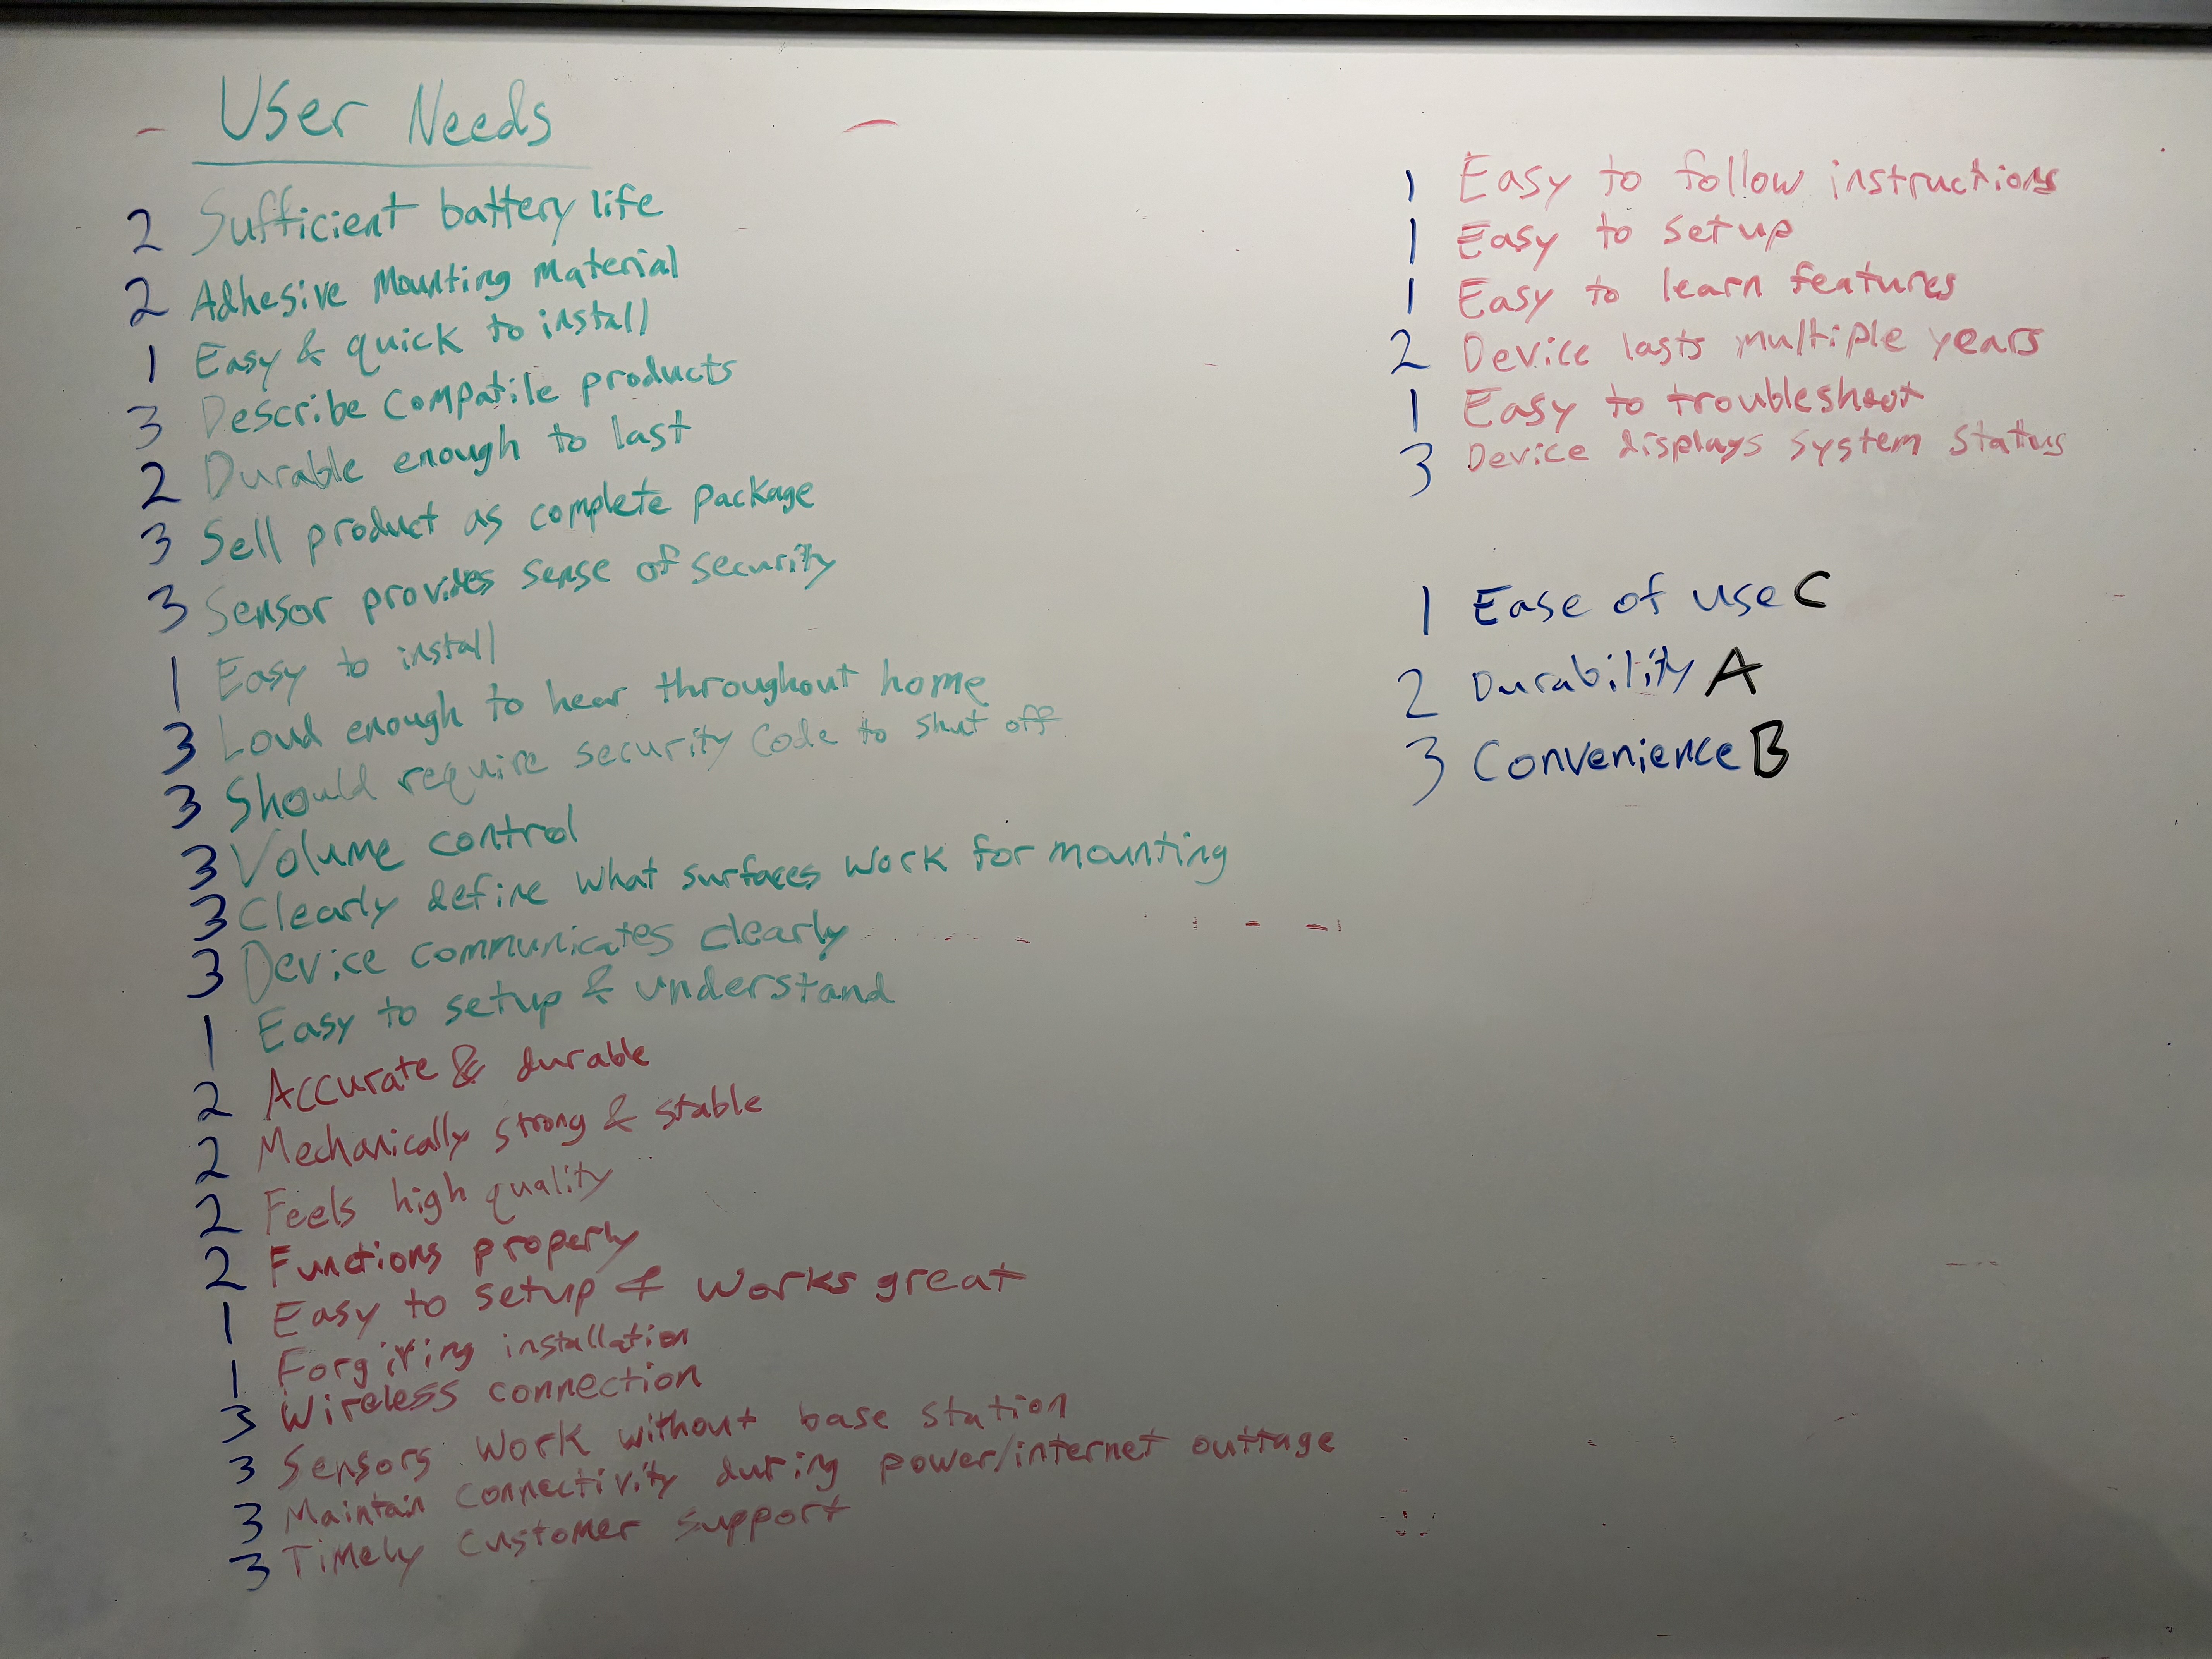 User Needs
2 Sufficient battery life
2 Adhesive Mounting Material
1 Easy & quick to install
3 Describe compatile products
2 Durable enough to last
3 Sell product as complete package
3 Sensor provides sense of security
1 Easy to install
3 Loud enough to hear throughout home
3 Should require security code to shut off
3 Volume control
3 Clearly define what surfaces work for mounting
3 Device communicates clearly
1 Easy to setup & understand
2 Accurate & durable
2 Mechanically strong & stable
2 Feels high quality
2 Functions properly
1 Easy to setup & works great
1 Forgiving installation
3 Wireless connection
3 Sensors work without base station
3 Maintain connectivity during power/internet outtage
3 Timely customer support
1 Easy to follow instructions
1 Easy to setup
1 Easy to learn features
2 Device lasts multiple years
1 Easy to troubleshoot
3 Device displays system status
1 Ease of use C
2 Durability A
3 Convenience B